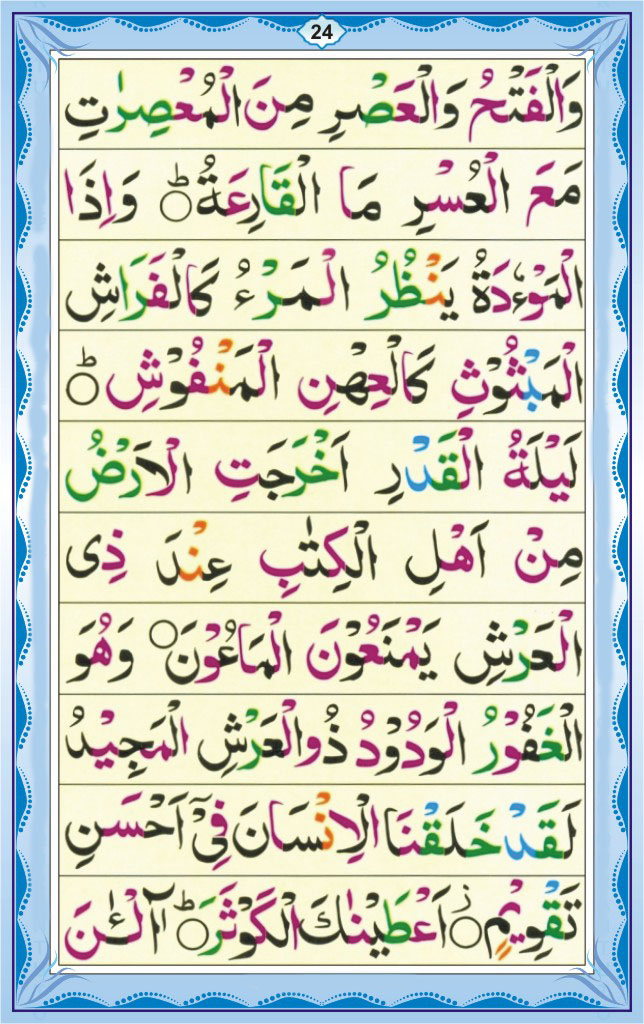 24
وَالْفَتْحُ وَالْعَصْرِ مِنَ الْمُعْصِرٰتِ
مَعَ الْعُسْرِ مَا الْقَارِعَةُ ○ؕ وَاِذَا
الْمَوْءٗدَةُ يَنْظُرُ الْمَرْءُ كَالْفَرَاشِ
الْمَبْثُوْثِ كَالْعِهْنِ الْمَنْفُوْشِ ○ؕ
لَيْلَةُ الْقَدْرِ اَخْرَجَتِ الْاَرْضُ
مِنْ اَهْلِ الْكِتٰبِ عِنْدَ ذِى
الْعَرْشِ يَمْنَعُوْنَ الْمَاعُوْنَ ○ وَهُوَ
الْغَفُوْرُ الْوَدُوْدُ ذُوالْعَرْشِ الْمَجِيْدُ
لَقَدْ خَلَقْنَا الْاِنْسَانَ فِىْۤ اَحْسَنِ
تَقْوِيْمٍ ○ز اَعْطَيْنٰكَ الْكَوْثَرَ ○ؕ آلْـٰٔنَ